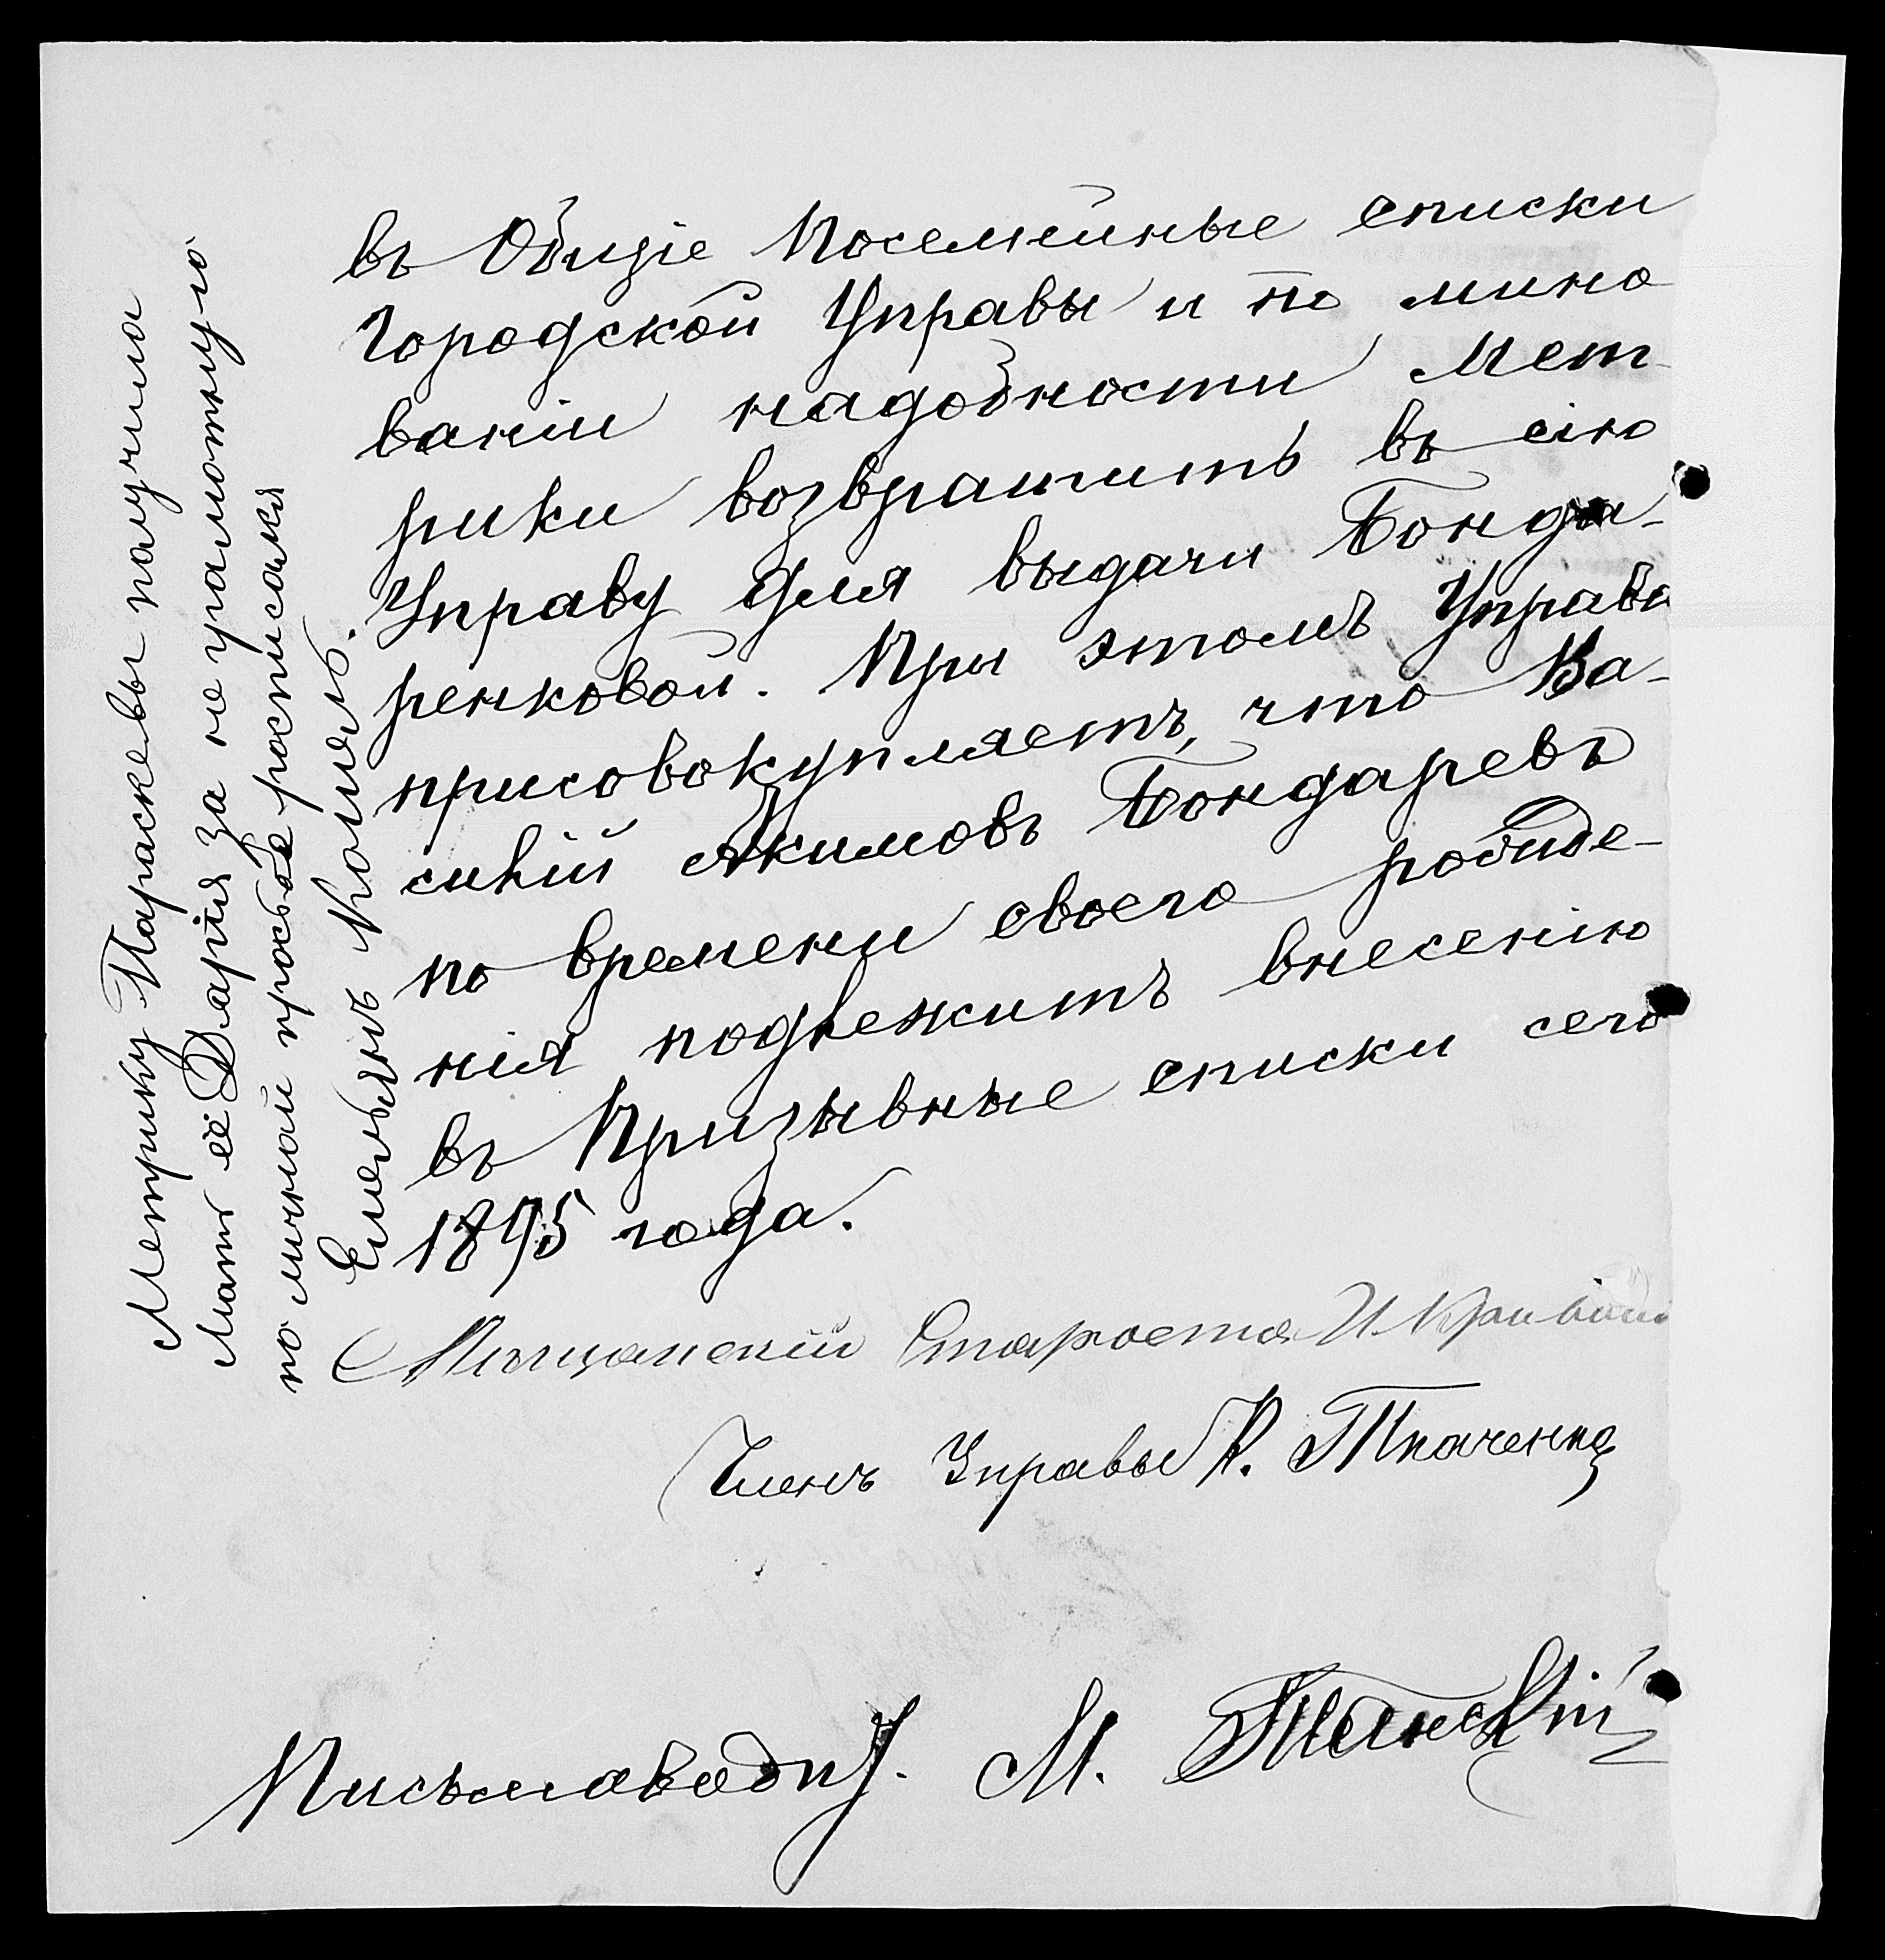 въ Общіе Посемейные списки
Городской Управы и по мино
ваніи надобности Мет-
рики возвратить въ сію
Управу для выдачи Бонда-
ренковой. При этомъ Управа
присовокупляетъ, что Ва-
силій Акимовъ Бондаревъ
по времени своего рожде-
нія подлежитъ внесенію
въ Призывные списки сего
1895 года.
Мѣщанскій Староста И. Кривой
Членъ Управы К. Ткаченко
Письмовод. М.
Метрику Параскевы получила
Мать её Дарія за не грамотную
по личной просьбе росписался
Емельянъ